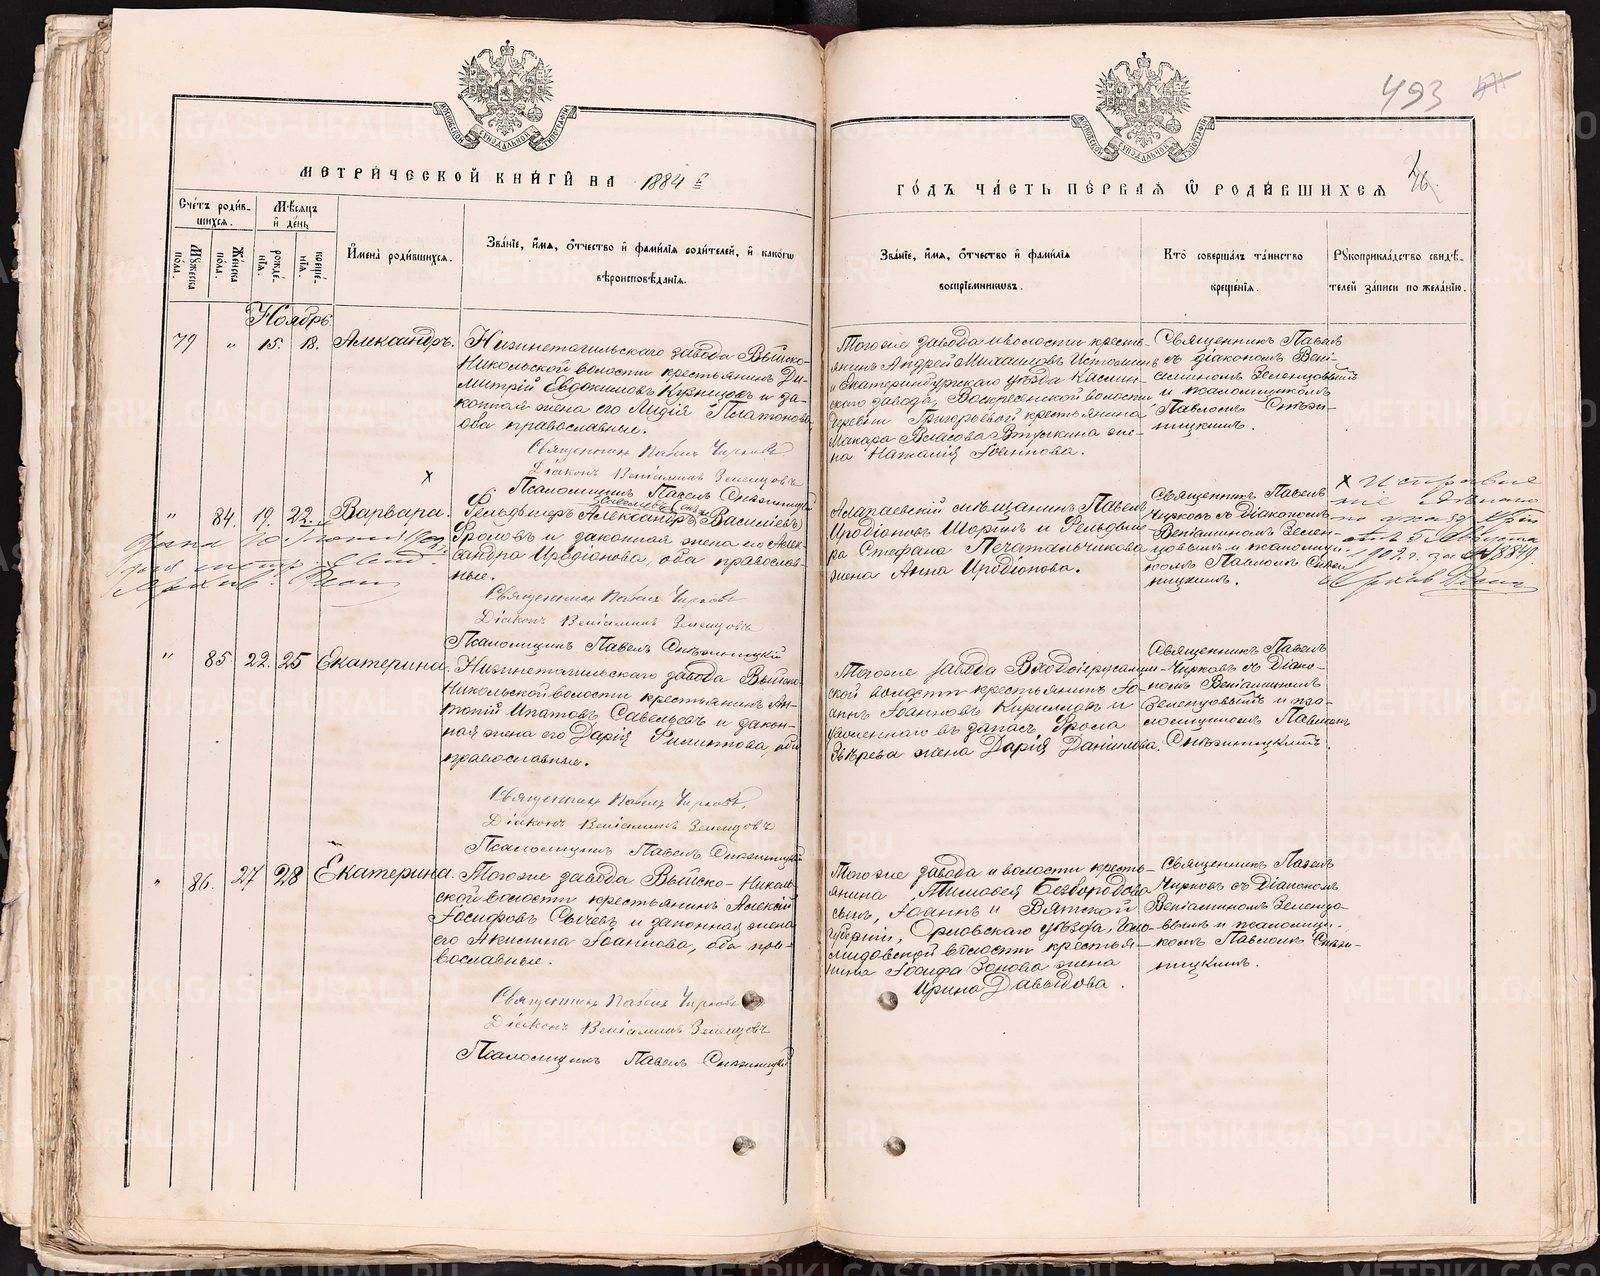 493
МЕТРИЧЕСКОЙ КНИГИ НА 1884 г
ГОДЪ ЧАСТЬ ПЕРВАЯ Ѡ РОДИВШИХСЯ
Счетъ родив-
шихся.
Мужеска
пола.
Женска
пола.
Мѣсяцъ
и день
рожде-
нія.
креще-
нія.
Имена родившихся.
Званіе, имя, отчество и фамилія родителей, и какогѡ
вѣроисповѣданія.
Званіе, имя, отчество и фамилія
воспріемниковъ.
Кто совершалъ таинство
крещенія.
Рукоприкладство свидѣ-
телей записи по желанію.
Ноябрь
79 " 15. 18. Александръ.
Нижнетагильскаго завода Выйско-
Никольской волости крестьянинъ Ди-
митрій Евдокимовъ Кузнецовъ и за-
конная жена его Лидія Платонова
оба православные.
Священникъ Павелъ Чирковъ
Діаконъ Веніаминъ Зеленцовъ
Псаломщикъ Павелъ Снѣжницкій
Тогоже завода и волости кресть-
янинъ Андрей Михаиловъ Истоминъ
и Екатеринбургскаго уѣзда Каслин-
скаго завода, Воскресенской волости
деревни Григорьевой крестьянина
Макара Власова Втускина же-
на Наталія Іоаннова.
Священникъ Павелъ
съ діакономъ Вені-
аминомъ Зеленцовымъ
и псаломщикомъ
Павломъ Снѣжи-
ницкимъ.
" 84. 19. 22. Варвара.
Фельдшеръ Александръ Василіевъ
Фроловъ и законная жена его Алек-
сандра Иродіонова, оба православ-
ные.
Священникъ Павелъ Чирковъ
Діаконъ Веніаминъ Зеленцовъ
Псаломщикъ Павелъ Снѣжницкій
Алапаевскій мѣщанинъ Павелъ
Иродіоновъ Шоринъ и Фельдше-
ра Стефана Печатальчикова
жена Анна Иродіонова.
Священникъ Павелъ
Чирковъ съ Діакономъ
Веніаминомъ Зелен-
цовымъ и псаломщи-
комъ Павломъ Снѣж-
ницкимъ.
х Исправле
ніе
по указу
1902 г. за № 8849.
" 85 22. 25 Екатерина.
Нижнетагильскаго завода Выйско-
Никольской волости крестьянинъ Ан-
тоній Ипатовъ Савельевъ и закон-
ная жена его Дарія Филиппова, оба
православные.
Священникъ Павелъ Чирковъ
Діаконъ Веніаминъ Зеленцовъ
Псаломщикъ Павелъ Снѣжницкій
Тогоже завода Входоіерусалим-
ской волости крестьянинъ Іо-
аннъ Іоанновъ Кириловъ и
уволеннаго въ запасъ Фрола
Звѣрева жена Дарія Даніилова.
Священникъ Павелъ
Чирковъ съ Діако-
номъ Веніаминомъ
Зеленцовымъ и пса-
ломщикомъ Павломъ
Снѣжницкимъ.
" 86. 27 28 Екатерина.
Тогоже завода Выйско-Николь-
ской волости крестьянинъ Алексій
Іосифовъ Сычевъ и законная жена
его Акилина Іоаннова, оба пра-
вославные.
Священникъ Павелъ Чирковъ
Діаконъ Веніаминъ Зеленцовъ
Псаломщикъ Павелъ Снѣжницкій
Тогоже завода и волости кресть-
янина Тимоѳея Безбородова
сынъ, Іоаннъ и Вятской
губерніи, Орловскаго уѣзда,
волости крестья-
нина Іосифа Зонова жена
Ирина Давыдова.
Священникъ Павелъ
Чирковъ съ Діакономъ
Веніаминомъ Зеленцо-
вымъ и псаломщи-
комъ Павломъ Снѣж-
ницкимъ.
METRIKI.GASO-URAL.RU